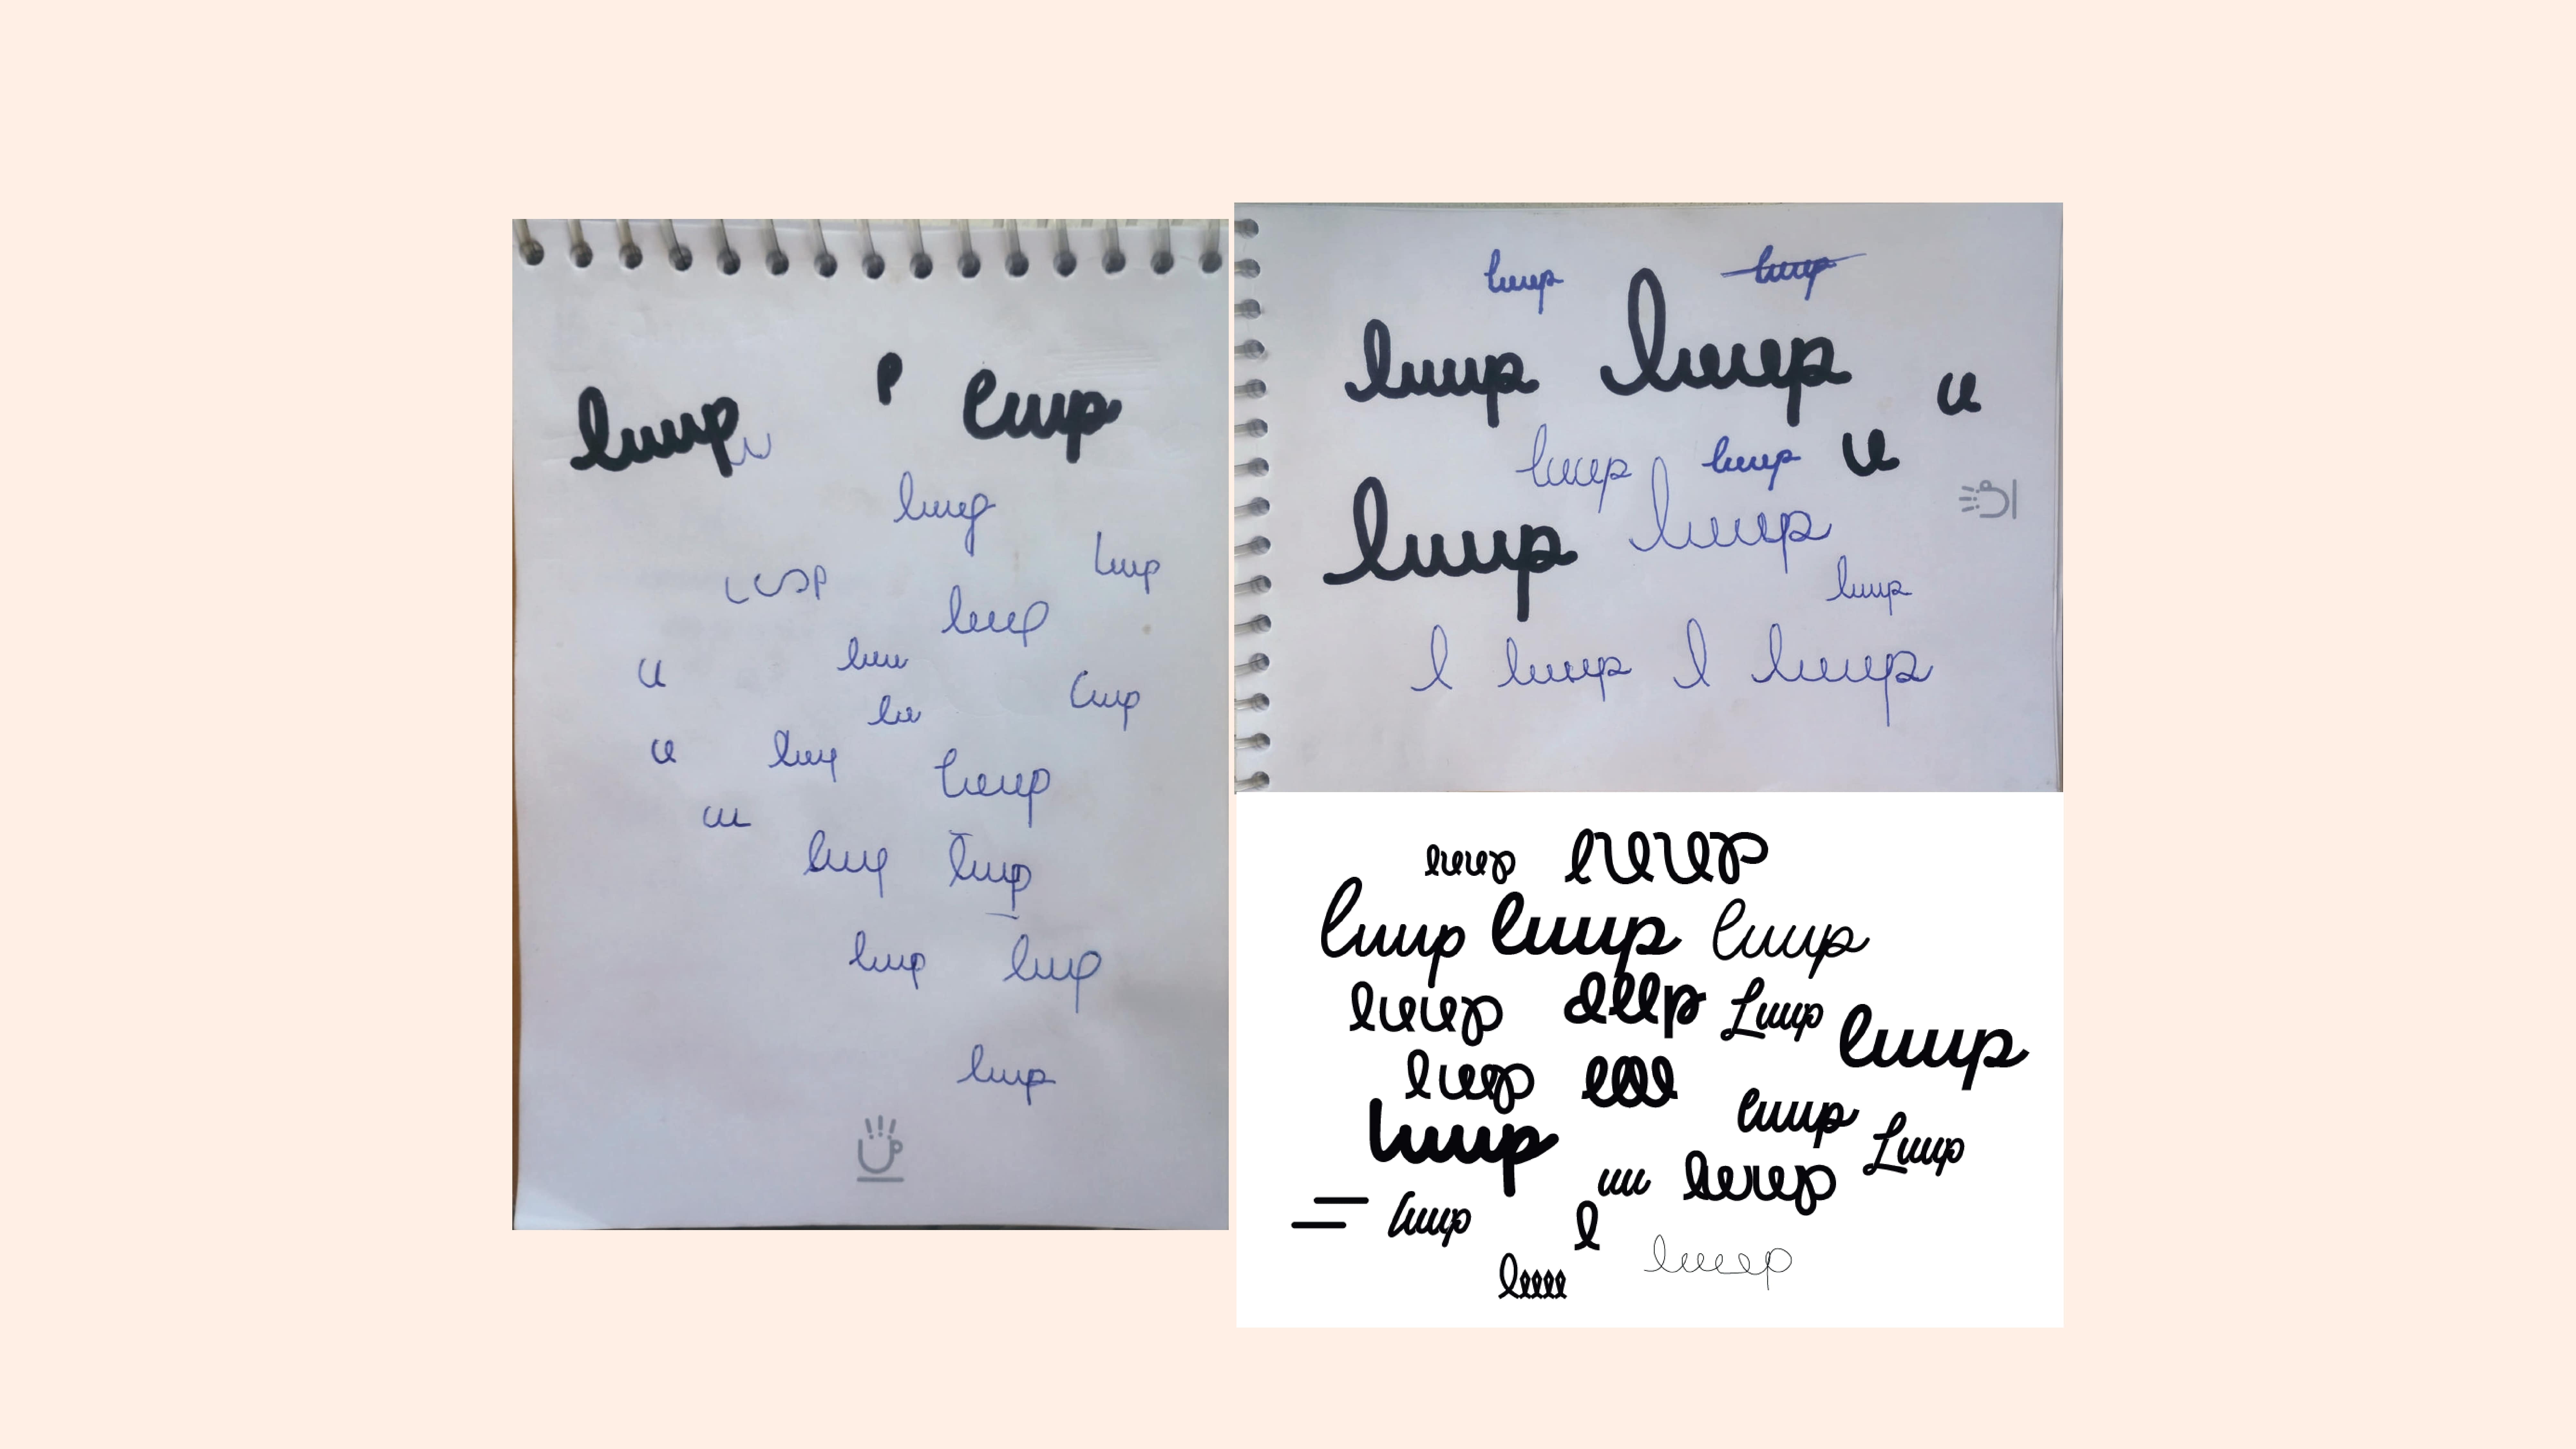 luup luup
luup
luup
luup
luup
luu
u
luup
lu
u
luup
luup
uu
luup luup
luup luup
luup
luup luup
luup luup
u
luup luup u
luup luup
luup
l luup l luup
luup luup
luup luup luup
luup Luup luup
luup
luup
luup Luup
uu luup
luup l
luup